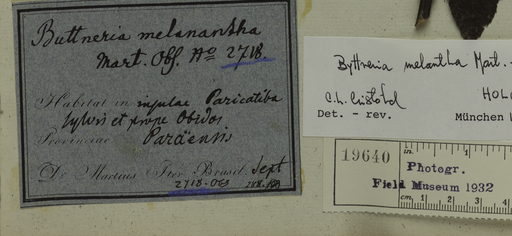 Buttneria melanantha
Mart. Obs. No 2718.
Habitat in insulae Paricatiba
sylvis et prope Obidos
Provinciae Paraënsis
Dr. Martius Iter Brasil. Sept
2718-Obs
Byttneria melantha Mart.
C.L. Cristóbal HOLO
Det. - rev. München
19640
in. 1
Photogr.
Field Museum 1932
cm 1 2 3 4